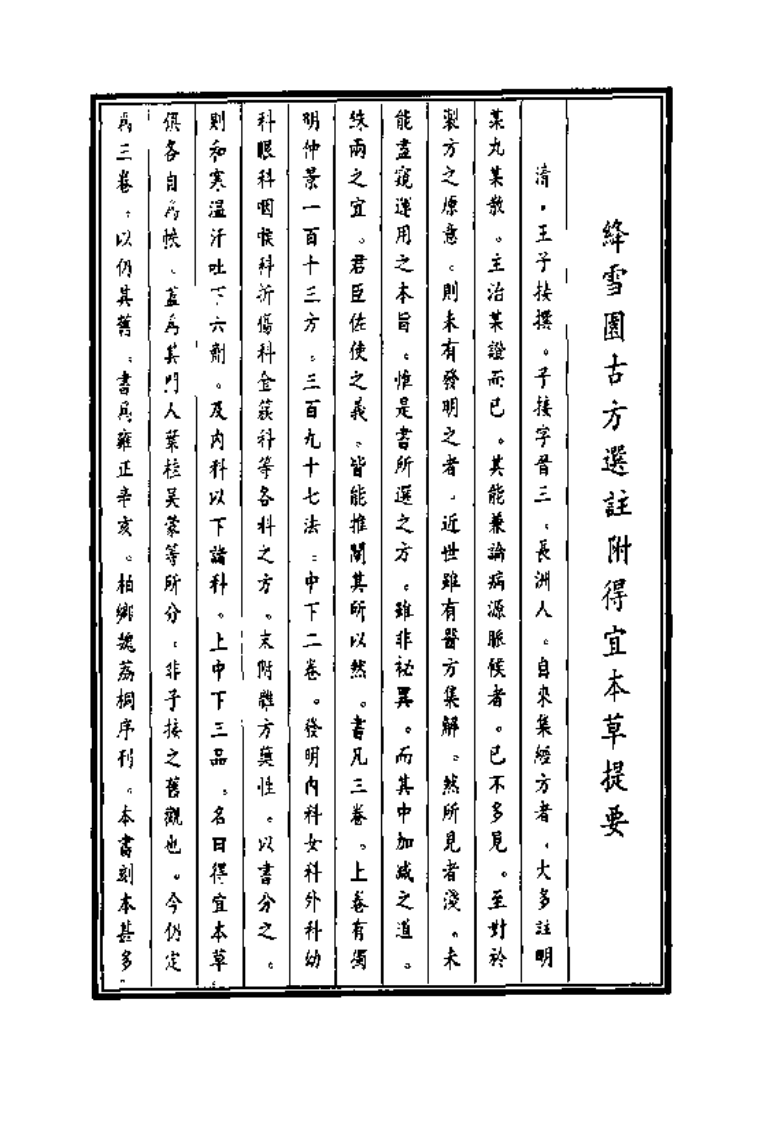 絳雪園古方選註附得宜本草提要
清。王子接撰。子接字晉三。長洲人。自來集經方者。大多註明
某丸某散。主治某證而已。其能兼論病源脈候者。已不多見。至對於
製方之原意。則未有發明之者。近世雖有醫方集解。然所見者淺。未
能盡窺運用之本旨。惟是書所選之方。雖非祕異。而其中加減之道。
銖兩之宜。君臣佐使之義。皆能推闡其所以然。書凡三卷。上卷有獨
明仲景一百十三方。三百九十七法。中下二卷。發明內科女科外科幼
科眼科咽喉科折傷科金簇科等各科之方。末附雜方藥性。以書分之。
則和寒溫汗吐下六劑。及內科以下諸科。上中下三品。名曰得宜本草。
俱各自為帙。蓋為其門人葉桂吳蒙等所分。非子接之舊觀也。今仍定
為三卷。以仍其舊。書為雍正辛亥。柏鄉魏荔桐序刊。本書刻本甚多。